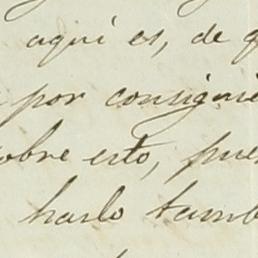 aquí es, de q
por consigui
obre esto, pue
harlo tamb